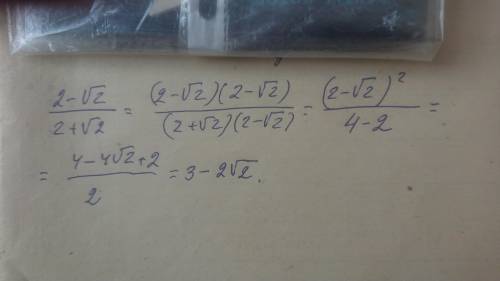 (2-√2)/(2+√2) = ((2-√2)(2-√2))/((2+√2)(2-√2)) = (2-√2)²/(4-2) =
= (4-4√2+2)/2 = 3-2√2.